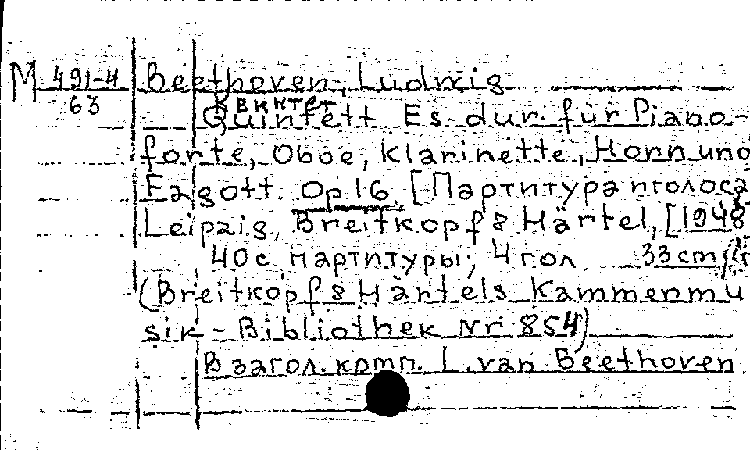 М 491-4 Beethoven, Ludwig
63 Квинтет
Quintett Es dur. für Piano-
forte, Oboe, Klarinette, Horn und
Fagott. Op 16. [Партитура и голоса
Leipzig, Breitkopf & Härtel, [1948
40 с партитуры; 4 гол 33 cm
(Breitkopf & Härtels Kammermu
sik - Bibliothek Nr 854)
В загол. комп. L. van Beethoven